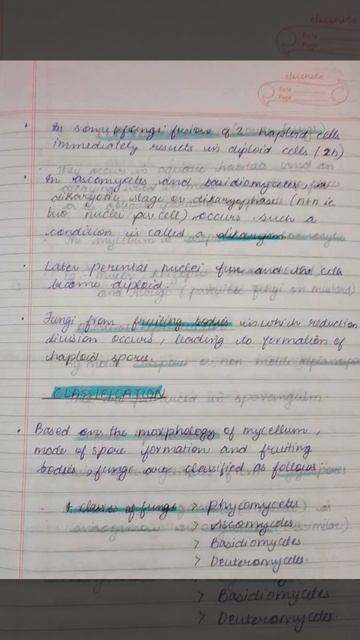 classmate
Date
Page
In some fungi fusion of 2 haploid cells
immediately results in diploid cells (2n)
In ascomycetes and basidiomycetes, a
dikaryotic stage or dikaryophase (n+n ie
two nuclei per cell) occurs such a
condition is called a dikaryon
Later parental nuclei fuse and the cells
become diploid.
Fungi from fruiting bodies in which reduction
division occurs, leading to formation of
haploid spores.
CLASSIFICATION
Based on the morphology of mycellum,
mode of spore formation and fruiting
bodies, fungi are classified as follows:
4 classes of fungi > Phycomycetes
> Ascomycetes
> Basidiomycetes
> Deuteromycetes
> Basidiomycetes
> Deuteromycetes